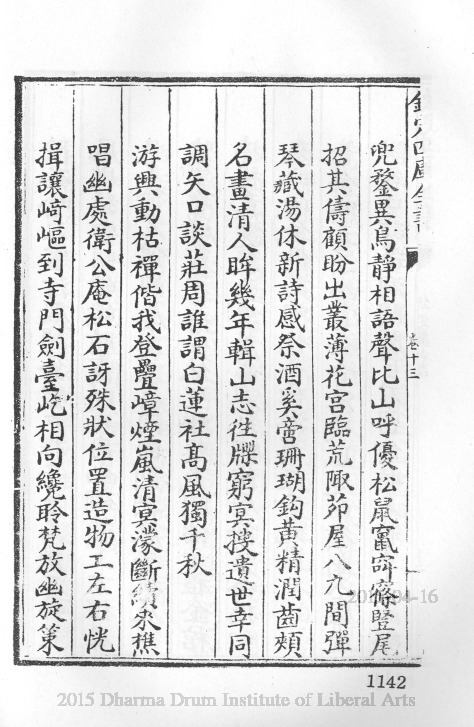 欽定四庫全書
卷十三
兜鍪異鳥靜相語聲比山呼優松鼠竄篠豎尾
招其儔顧盼出叢薄花宮臨荒陬茆屋八九間彈
琴藏湯休新詩感祭酒奚啻珊瑚鈎黄精潤齒頰
名畫清人眸幾年輯山志徃牒窮冥搜遺世幸同
調矢口談莊周誰謂白蓮社髙風獨千秋
游興動枯禪偕我登疊嶂煙嵐清冥濛斷續來樵
唱幽處衛公庵松石訝殊狀位置造物工左右恍
揖讓崎嶇到寺門劍臺屹相向纔聆梵放幽旋策
1142
2015 Dharma Drum Institute of Liberal Arts